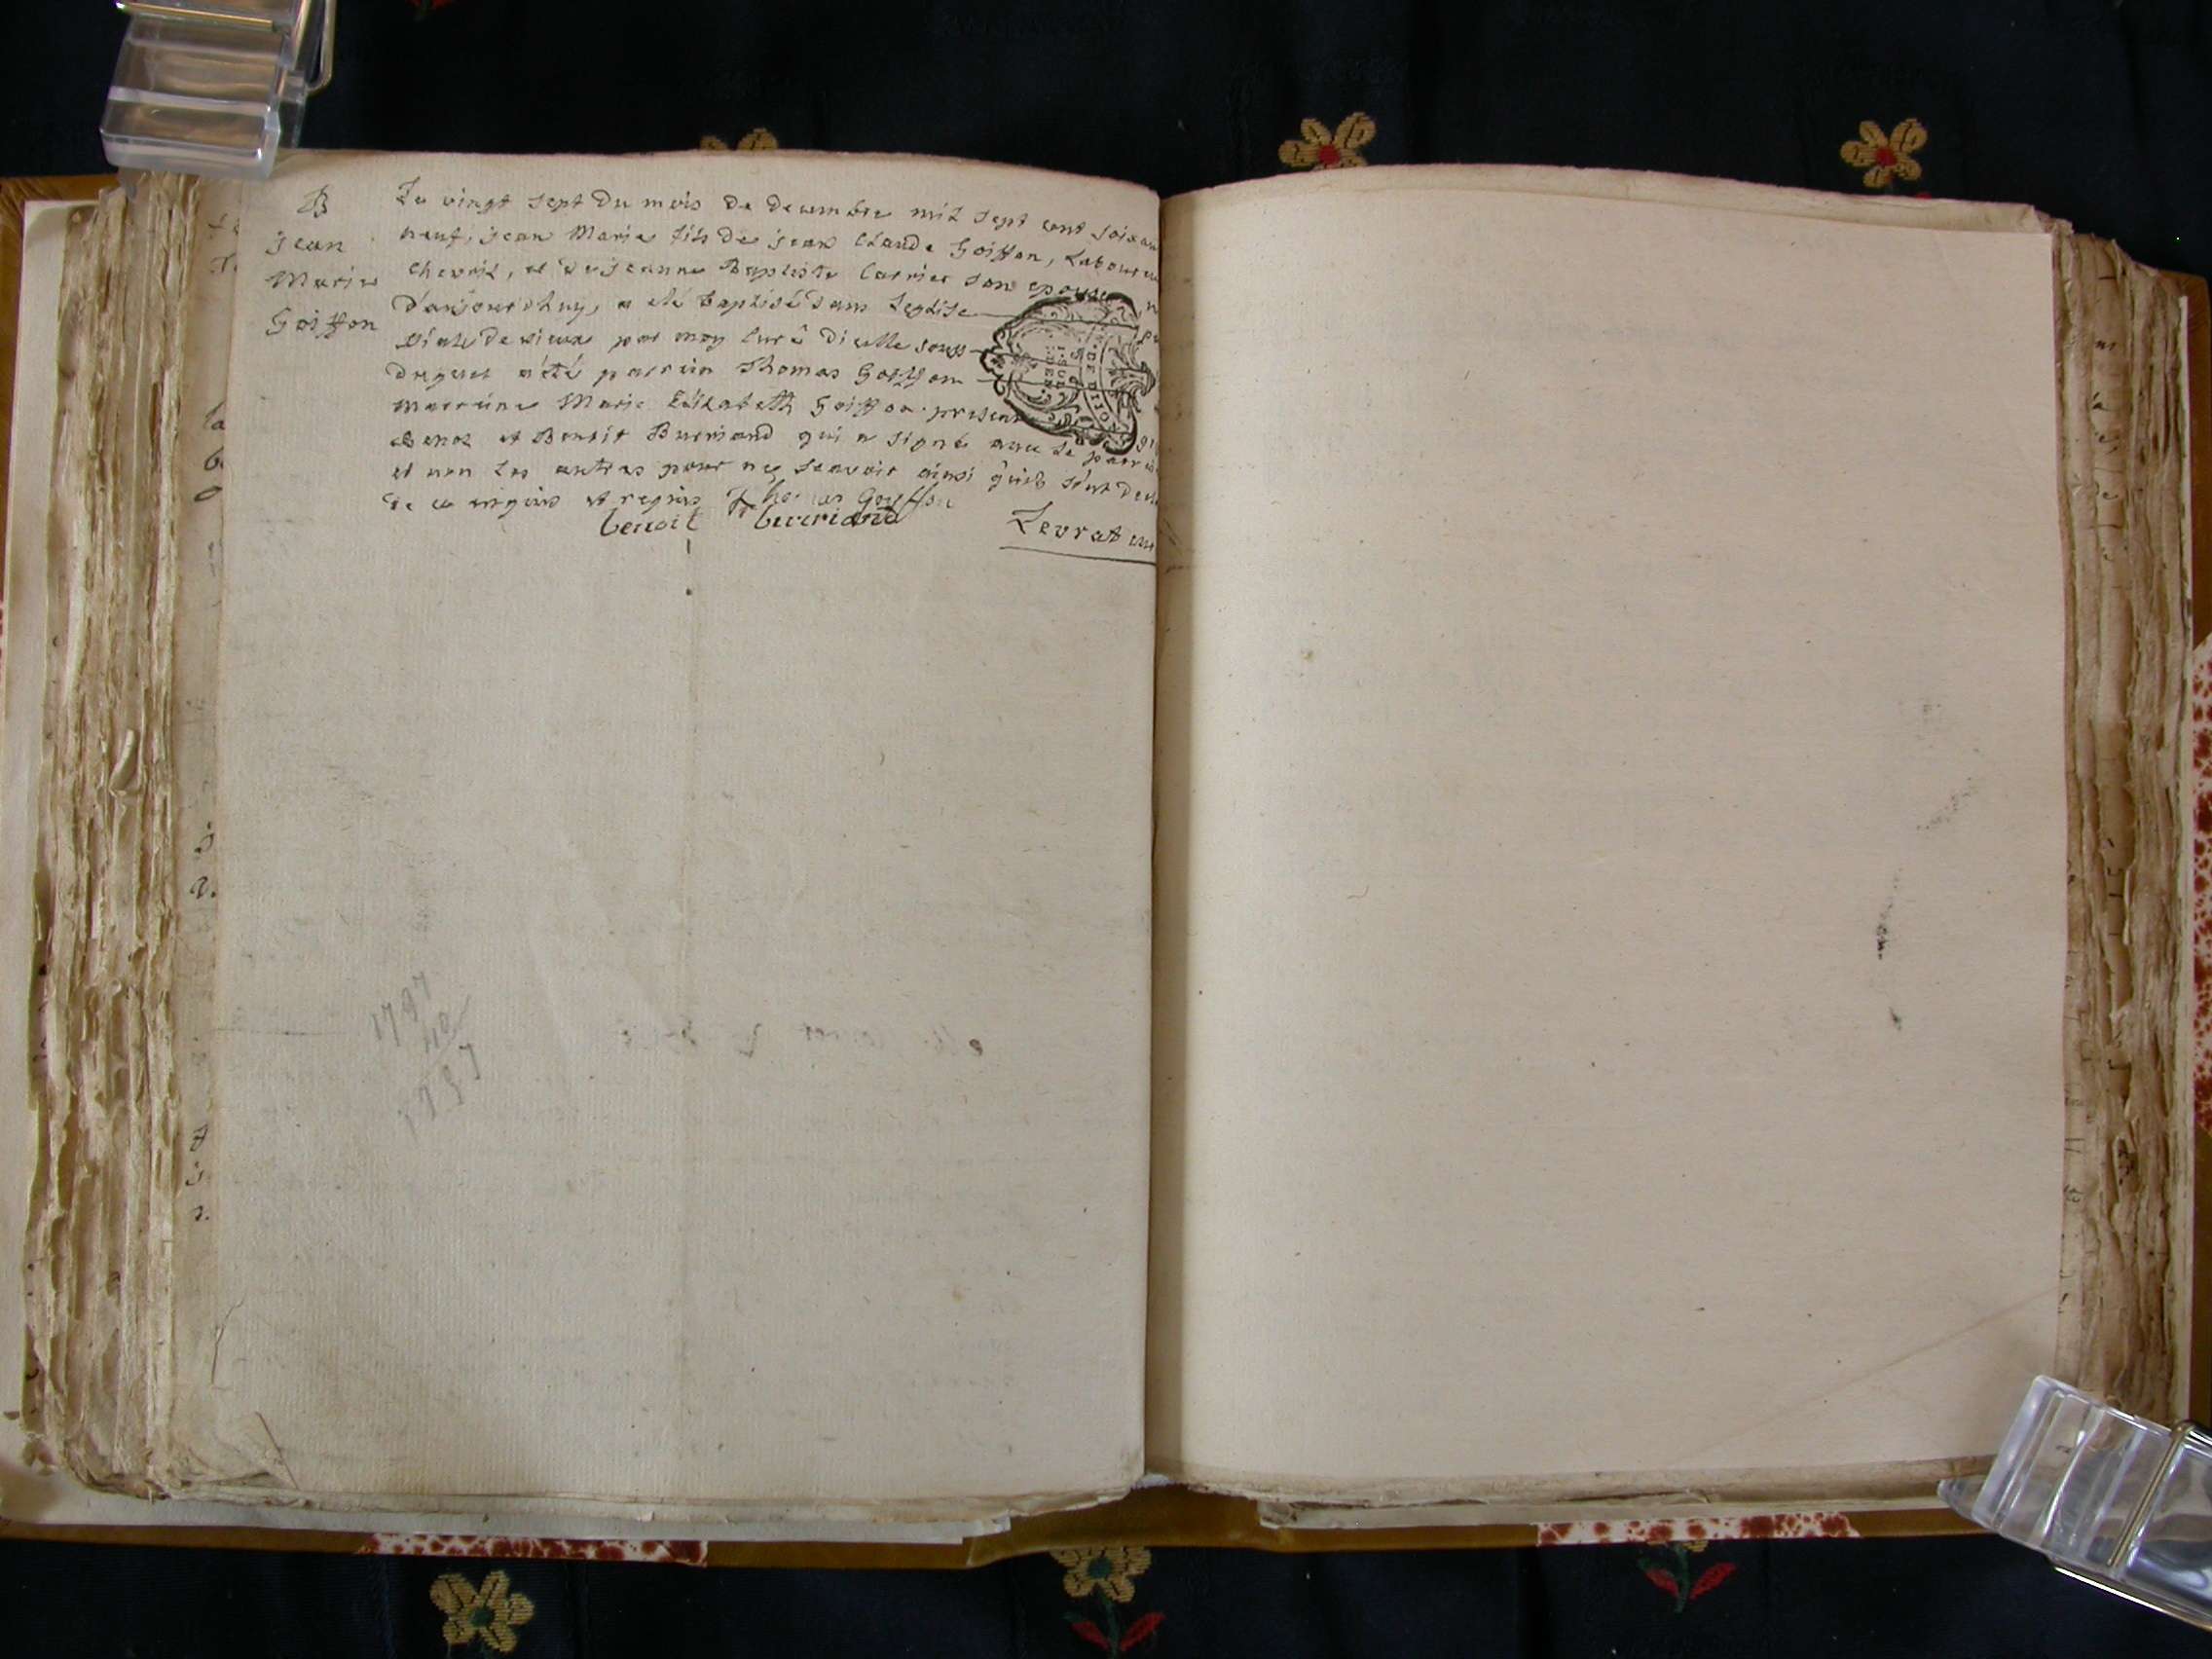 B
jean
Marie
Goiffon
Le vingt sept du mois de decembre mil sept cent soixan
neuf, jean Marie fils de jean Claude Goiffon, Laboureu
chevril, et de jeanne Baptiste Carrier son epouse, n
d'aujourdhuy, a eté baptisé dans leglise
de vieux par moy Curé dicelle souss
duquel a été parrein Thomas Goiffon
marreine Marie Elizabeth Goiffon presen
et Benoit Buerriand qui a signé avec le parre
et non les autres pour ne sçavoir ainsi qu'ils s'ont decl
de ce enquis et requis Thomas Goyffon
benoit buerriand
Levrat cur
DE DIJON
1797
40
1757